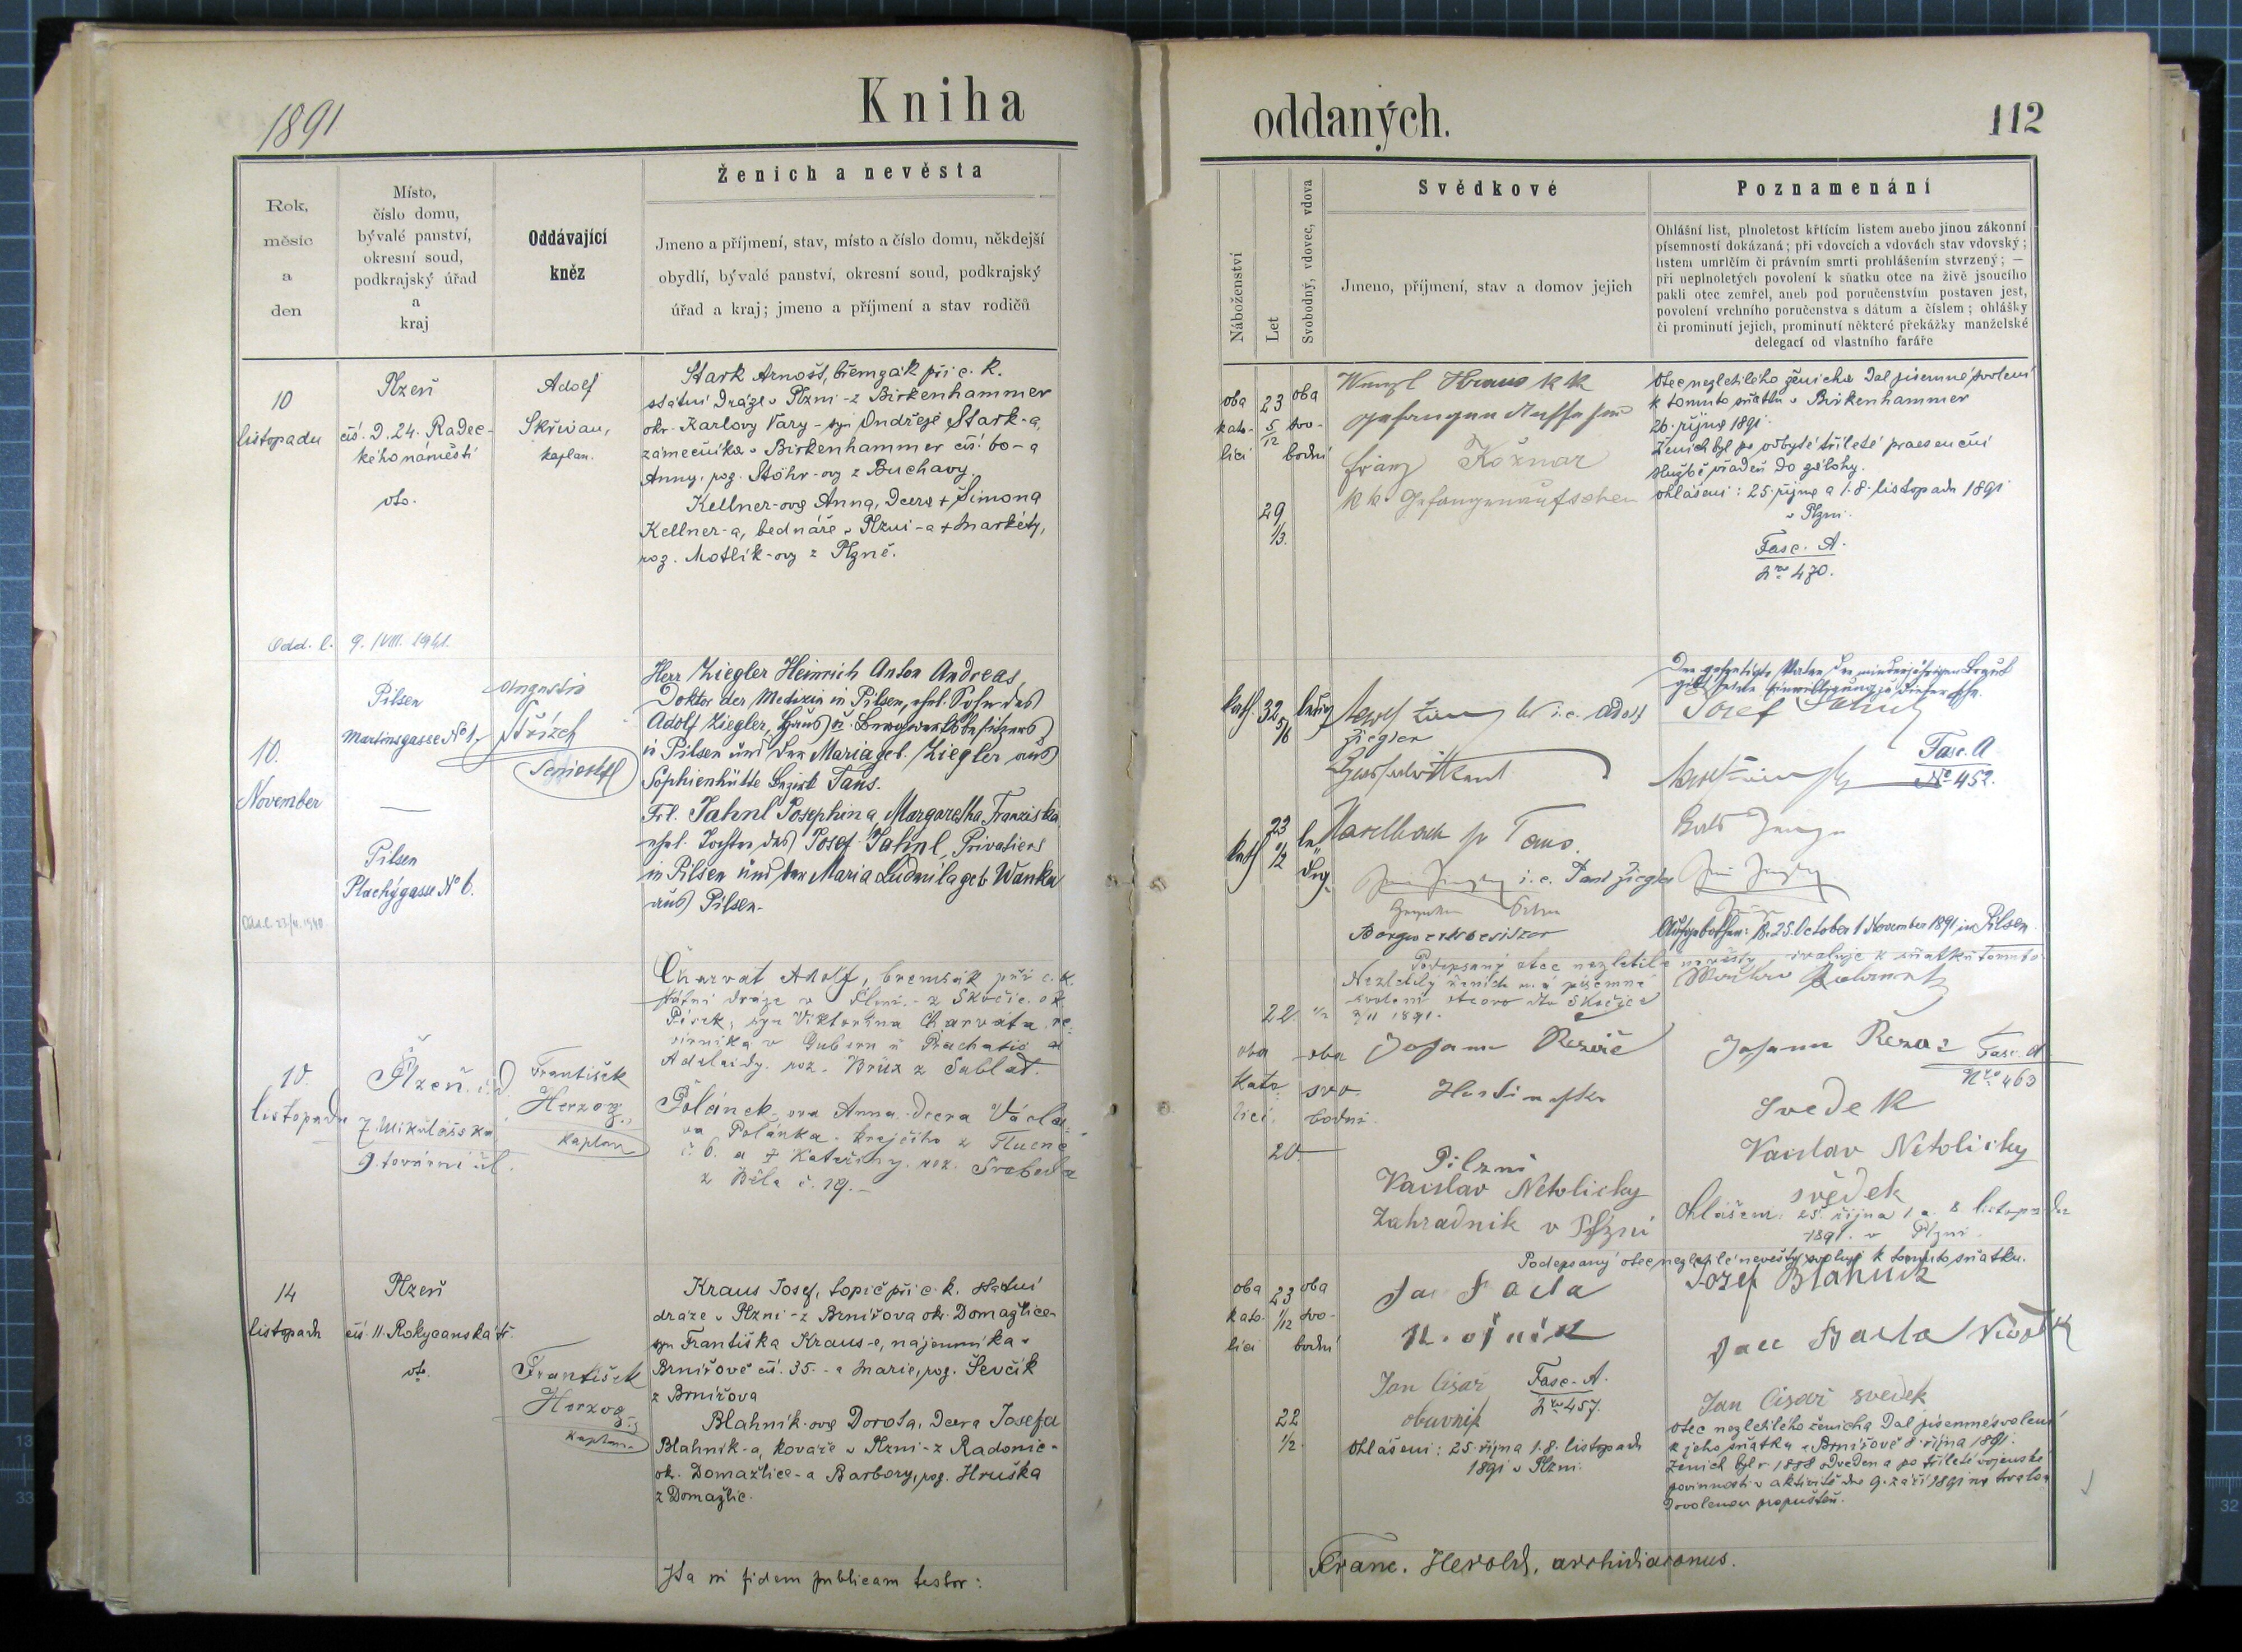 1891
Kniha
Rok,
měsíc
a
den
Místo,
číslo domu,
bývalé panství,
okresní soud,
podkrajský úřad
a
kraj
Oddávající
kněz
Ženich a nevěsta
Jmeno a příjmení, stav, místo a číslo domu, někdejší
obydlí, bývalé panství, okresní soud, podkrajský
úřad a kraj; jmeno a příjmení a stav rodičů
10
listopadu
Plzeň
čís. D. 24. Radec-
kého náměstí
Adolf
Skřivan,
kaplan.
Stark Arnošt, břemzák při c. k.
státní dráze v Plzni - z Birkenhammer
okr. Karlovy Vary - syn Ondřeje Stark-a,
zámečníka v Birkenhammer čís. 60 - a
Anny, roz. Stöhr-ovy z Buchavy.
Kellner-ova Anna, dcera + Šimona
Kellner-a, bednáře v Plzni - a + Markéty,
roz. Motlík-ovy z Plzně.
Odd. l. 9. /VIII. 1941.
10.
November
Pilsen
Martinsgasse No 1,
Pilsen
Plachýgasse No 6.
Augustin
Třízek
Herr Ziegler Heinrich Anton Andreas,
Doktor der Medizin in Pilsen, ehel. Sohn des
Adolf Ziegler, Haus u. Bergwerksbesitzers
in Pilsen und der Maria geb. Ziegler aus
Sophienhütte Bezirk Taus.
Frl. Jahnl Josephina Margaretha Franziska
ehel. Tochter des Josef Jahnl, Privatiers
in Pilsen und der Maria Ludmila geb. Wanka
aus Pilsen.
10.
listopadu
Plzeň. č. D.
7. Mikulášská
9. tovární ul.
František
Herzog,
kaplan
Charvat Adolf, bremsák při c. k.
státní dráze v Plzni. - z Skočic. ok.
Písek, syn Viktorina Charváta, re-
virníka v Gubern u Prachatic a
Adelaidy. roz. Brüx z Sablat.
Polánek-ova Anna. dcera Václa-
va Polánka. krejčího z Tlucné
č. 6. a + Kateřiny. roz. Svoboda
z Bíla č. 19. -
14
listopadu
Plzeň
čís. 11. Rokycanská tř.
František
Herzog,
kaplan
Kraus Josef, topič při c. k. státní
dráze v Plzni - z Brnířova okr. Domažlice -
syn Františka Kraus-e, nájemníka v
Brnířově čís. 35. - a Marie, roz. Ševčík
z Brnířova
Blahník-ova Dorota, dcera Josefa
Blahník-a, kováře v Plzni - z Radonic -
okr. Domažlice - a Barbory, roz. Hruška
z Domažlic.
Ita in fidem publicam testor:
oddaných.
112
Náboženství
Let
Svobodný, vdovec, vdova
Svědkové
Jmeno, příjmení, stav a domov jejich
Poznamenání
Ohlášní list, plnoletost křtícím listem anebo jinou zákonní
písemností dokázaná; při vdovcích a vdovách stav vdovský;
listem umrlčím či právním smrti prohlášením stvrzený; —
při neplnoletých povolení k sňatku otce na živě jsoucího
pakli otec zemřel, aneb pod poručenstvím postaven jest,
povolení vrchního poručenstva s dátum a číslem; ohlášky
či prominutí jejich, prominutí některé překážky manželské
delegací od vlastního faráře
oba
kato-
líci
23
5/12
oba
svo-
bodní
29
1/3.
Wenzl Kraus k k
Franz Kožnar
k k. Gefangenaufseher
Otec nezletilého ženicha dal písemné svolení
k tomuto sňatku v Birkenhammer
26. října 1891.
Ženich byl po odbyté tříleté praesenční
službě přadeň do zálohy.
Ohlášeni: 25. října a 1. 8. listopadu 1891
v Plzni.
Fasc. A.
Nro 470.
kath
32
5/6
ledig
i. e. Adolf
Ziegler
kath
23
1/2
le-
dig.
Haselbach p Taus.
i. e. Paul Ziegler
Bergwerksbesitzer
Der gefertigte Vater der minderjährigen Braut
gibt seine Einwilligung zu dieser Ehe.
Josef Jahnl
Fasc. A
No 452.
Aufgebothen: 18. 25. October 1 November 1891 in Pilsen.
Podepsaný otec nezletilé nevěsty, svoluje k sňatku tomuto.
Nezletilý ženich má písemné
svolení otcovo dto Skočice
3/11 1891.
22.
oba
kato-
líci.
oba
svo-
bodni.
20.
Johann Řezáč
Pilzni
Vaclav Netolicky
Zahradnik v Plzni
Johann Řezáč
Fasc. A
Nro 463
Svedek
Vaclav Netolicky
svědek
Ohlášeni: 25. října 1 a. 8 listopadu
1891. v Plzni.
Podepsaný otec nezletilé nevěsty svoluje k tomuto sňatku.
Josef Blahnik
oba
kato-
líci
23
1/12
oba
svo-
bodní
22
1/2.
Jan Císař
obuvník
Fasc. A.
Nro 457.
Ohlášeni: 25. října 1. 8. listopadu
1891 v Plzni.
Jan Císař svedek
Otec nezletilého ženicha dal písemné svolení
k jeho sňatku v Brnířově 8. října 1891.
Ženich byl r. 1888 odveden a po tříleté vojenské
povinnosti v aktivitě dne 9. září 1891 na trvalou
dovolenou propuštěn.
Franc. Herold, archidiaconus.